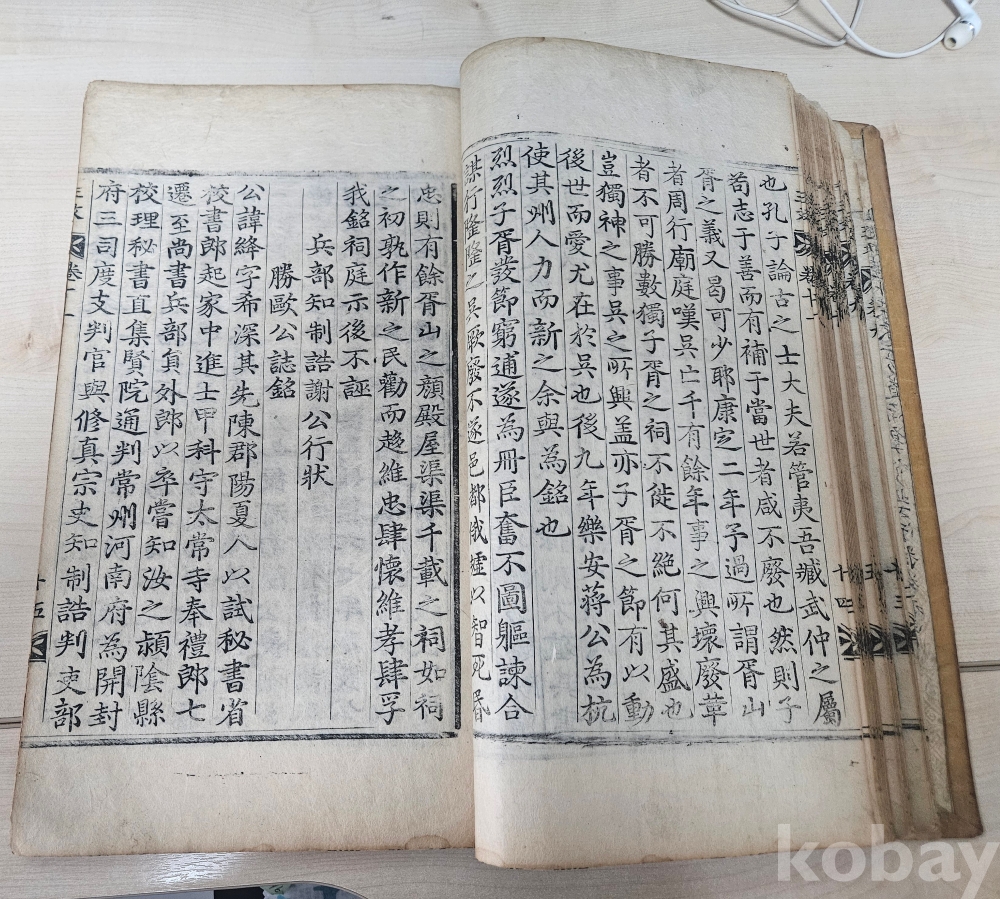 也孔子論古之士大夫若管夷吾臧武仲之屬
苟志于善而有補于當世者咸不廢也然則子
胥之義又曷可少耶康定二年予過所謂胥山
者周行廟庭嘆吳亡千有餘年事之興壞廢革
者不可勝數獨子胥之祠不徙不絕何其盛也
豈獨神之事吳之所興盖亦子胥之節有以動
後世而愛尤在於吳也後九年樂安蔣公為杭
使其州人力而新之余與為銘也
烈烈子胥發節窮逋遂為冊臣奮不圖軀諫合
謀行隆隆之吳厥廢不遂邑都俄墟以智死昬
忠則有餘胥山之顏殿屋渠渠千載之祠如祠
之初孰作新之民勸而趍維忠肆懷維孝肆孚
我銘祠庭示後不誣
兵部知制誥謝公行狀
勝歐公誌銘
公諱絳字希深其先陳郡陽夏人以試秘書省
校書郎起家中進士甲科守太常寺奉禮郎七
遷至尚書兵部負外郎以卒嘗知汝之潁陰縣
校理秘書直集賢院通判常州河南府為開封
府三司度支判官與修真宗史知制誥判吏部
十五
卷十一
十四
kobay